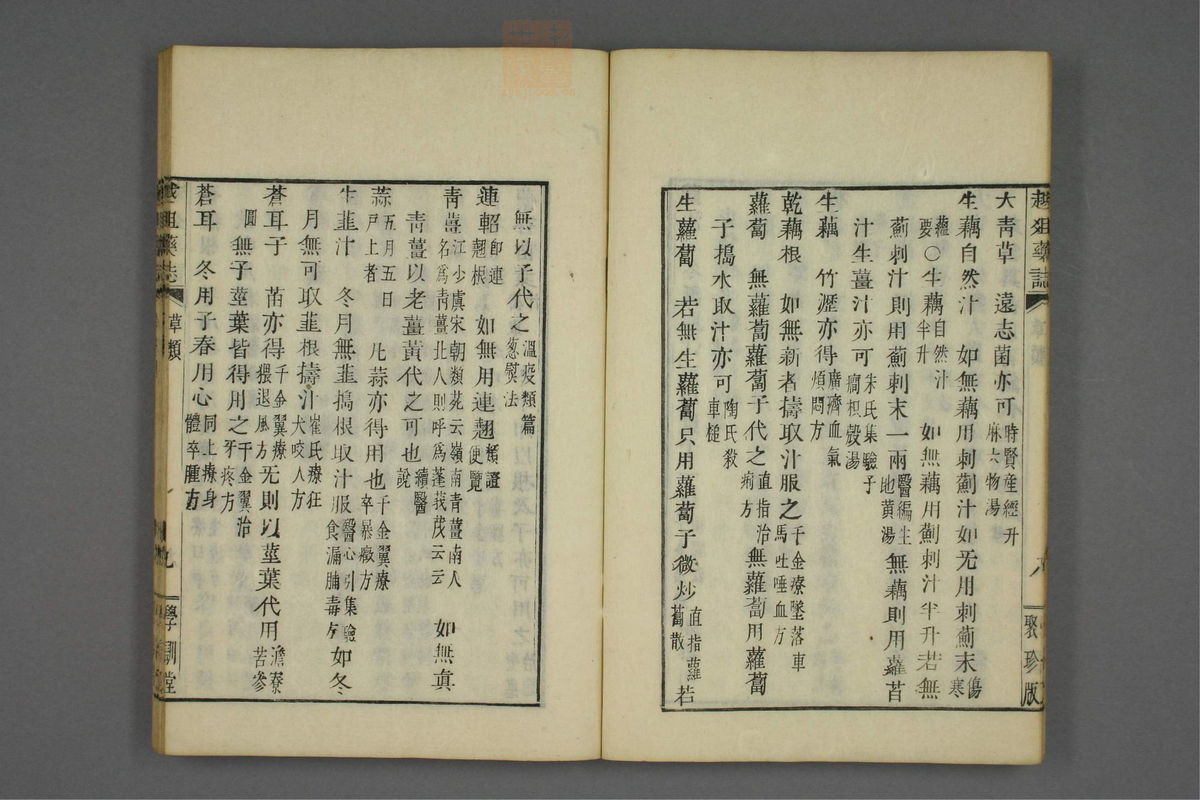 越俎藥誌
聚珍版
大青草　遠志菌亦可時賢産經升麻六物湯
生藕自然汁　如無藕用刺薊汁如无用刺薊末傷寒
蘊要○生藕自然汁半升　如無藕用薊刺汁半升若無
薊刺汁則用薊刺末一兩醫編生地黄湯無藕則用蘿苩
汁生薑汁亦可朱氏集驗子癎根殼湯
生藕　竹瀝亦得廣濟血氣煩悶方
乾藕根　如無新者擣取汁服之千金療墜落車馬吐唾血方
蘿蔔　無蘿蔔蘿蔔子代之直指治痢方無蘿蔔用蘿蔔
子搗水取汁亦可陶氏殺車槌
生蘿蔔　若無生蘿蔔只用蘿蔔子微炒直指蘿蔔散若
無以子代之溫疫類篇葱熨法
連軺即連翹根　如無用連翹類證便覽
青薑江少虞宋朝類苑云嶺南青薑南人名爲青薑北人則呼爲蓬莪茂云云　如無真
青薑以老薑黃代之可也續醫說
蒜五月五日戶上者　凡蒜亦得用也千金翼療卒暴癥方
生韭汁　冬月無韭搗根取汁服醫心引集驗食漏脯毒方如冬
月無可取韭根擣汁崔氏療狂犬咬人方
蒼耳子　苗亦得千金翼療猥退風方无則以莖葉代用澹寮苦參
圓無子莖葉皆得用之千金翼治牙疼方
蒼耳　冬用子春用心同上療身體卒腫方
越俎藥誌
草類
九
學訓堂